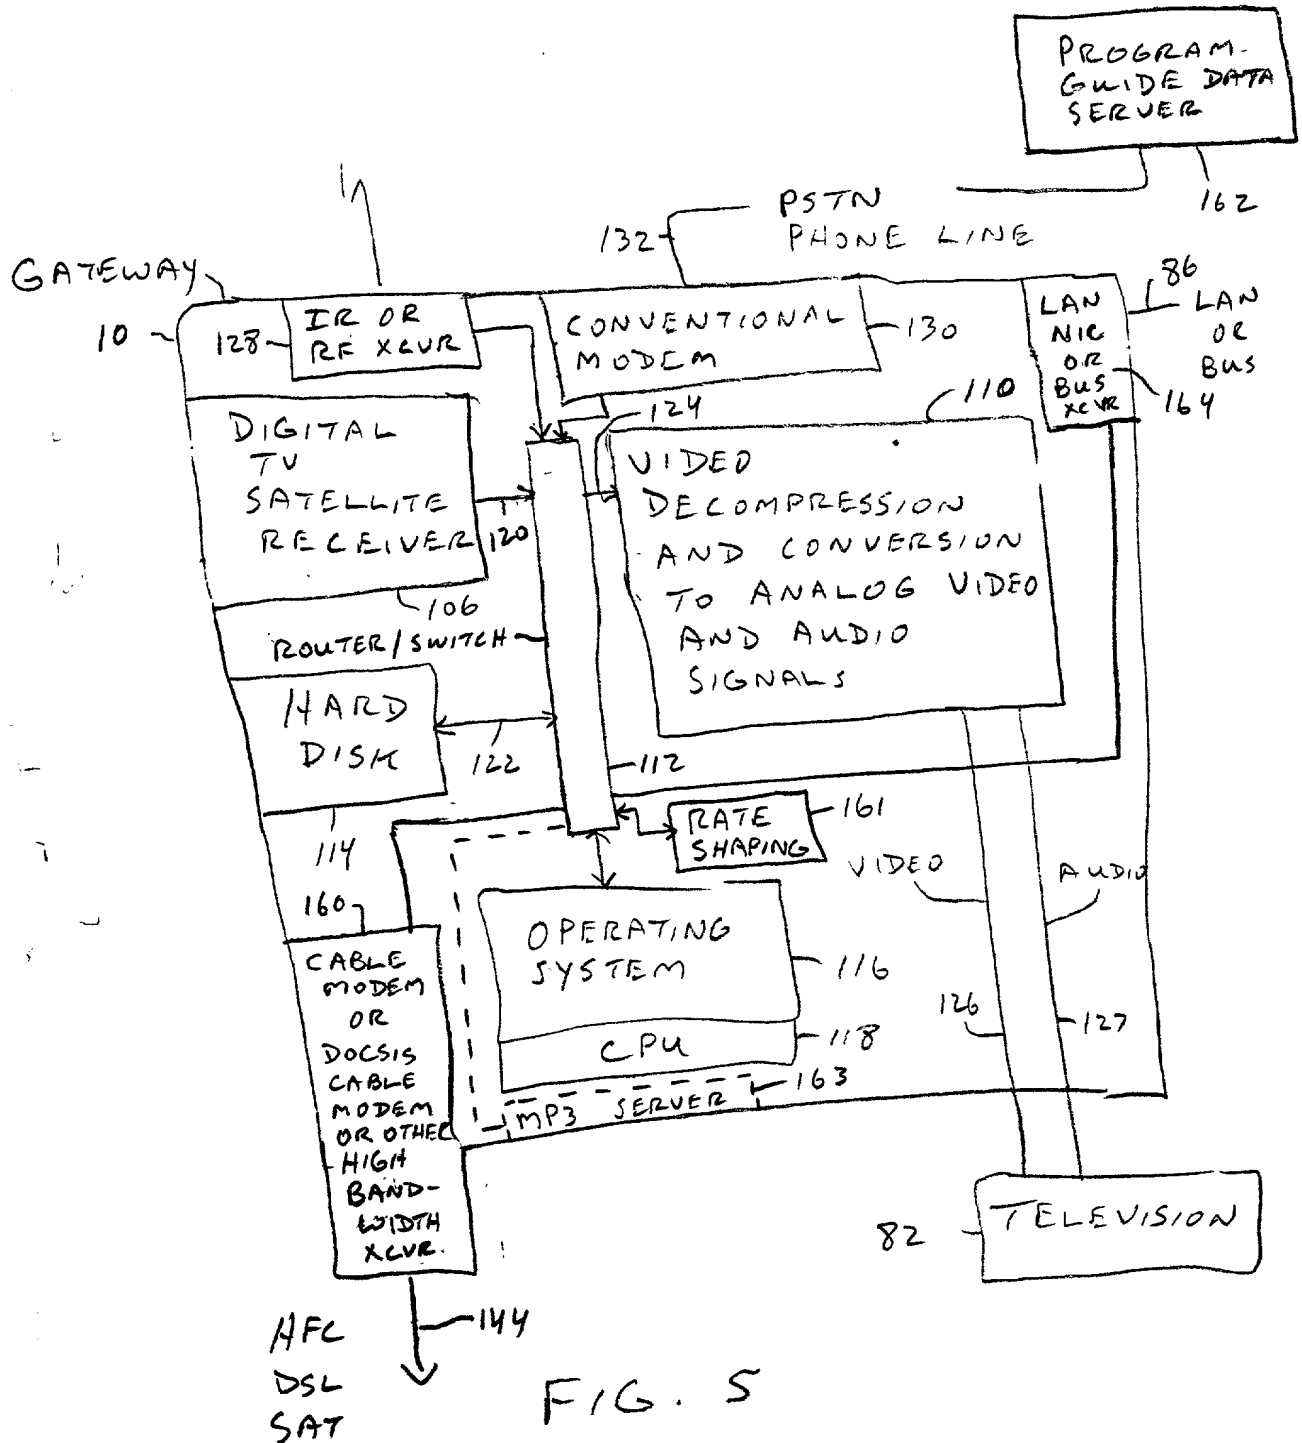 PROGRAM-
GUIDE DATA
SERVER
162
PSTN
PHONE LINE
132
GATEWAY
10
IR OR
RF XCVR
128
CONVENTIONAL
MODEM
130
LAN
NIC
OR
BUS
XCVR
164
86
LAN
OR
BUS
DIGITAL
TV
SATELLITE
RECEIVER
106
120
124
110
VIDEO
DECOMPRESSION
AND CONVERSION
TO ANALOG VIDEO
AND AUDIO
SIGNALS
ROUTER/SWITCH
HARD
DISK
122
112
114
RATE
SHAPING
161
VIDEO
AUDIO
160
CABLE
MODEM
OR
DOCSIS
CABLE
MODEM
OR OTHER
HIGH
BAND-
WIDTH
XCVR.
OPERATING
SYSTEM
116
CPU
118
126
127
MP3 SERVER
163
TELEVISION
82
144
HFC
DSL
SAT
FIG. 5